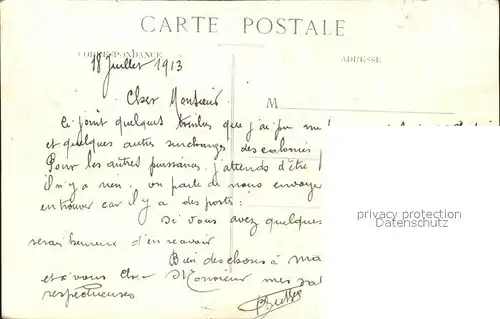 CARTE POSTALE
CORRESPONDANCE
ADRESSE
18 Juillet 1913
Cher Monsieur
M
Ci joint quelques timbres que j'ai pu
et quelques autres surcharges des colonies
Pour les autres j'attends d'être
il n'y a rien, on parle de nous envoyer
en trouver car il y a des ports:
Si vous avez quelques
serai heureux d'en recevoir
Bien des choses à Ma
et à vous Cher Monsieur mes sal
respectueuses
privacy protection
Datenschutz